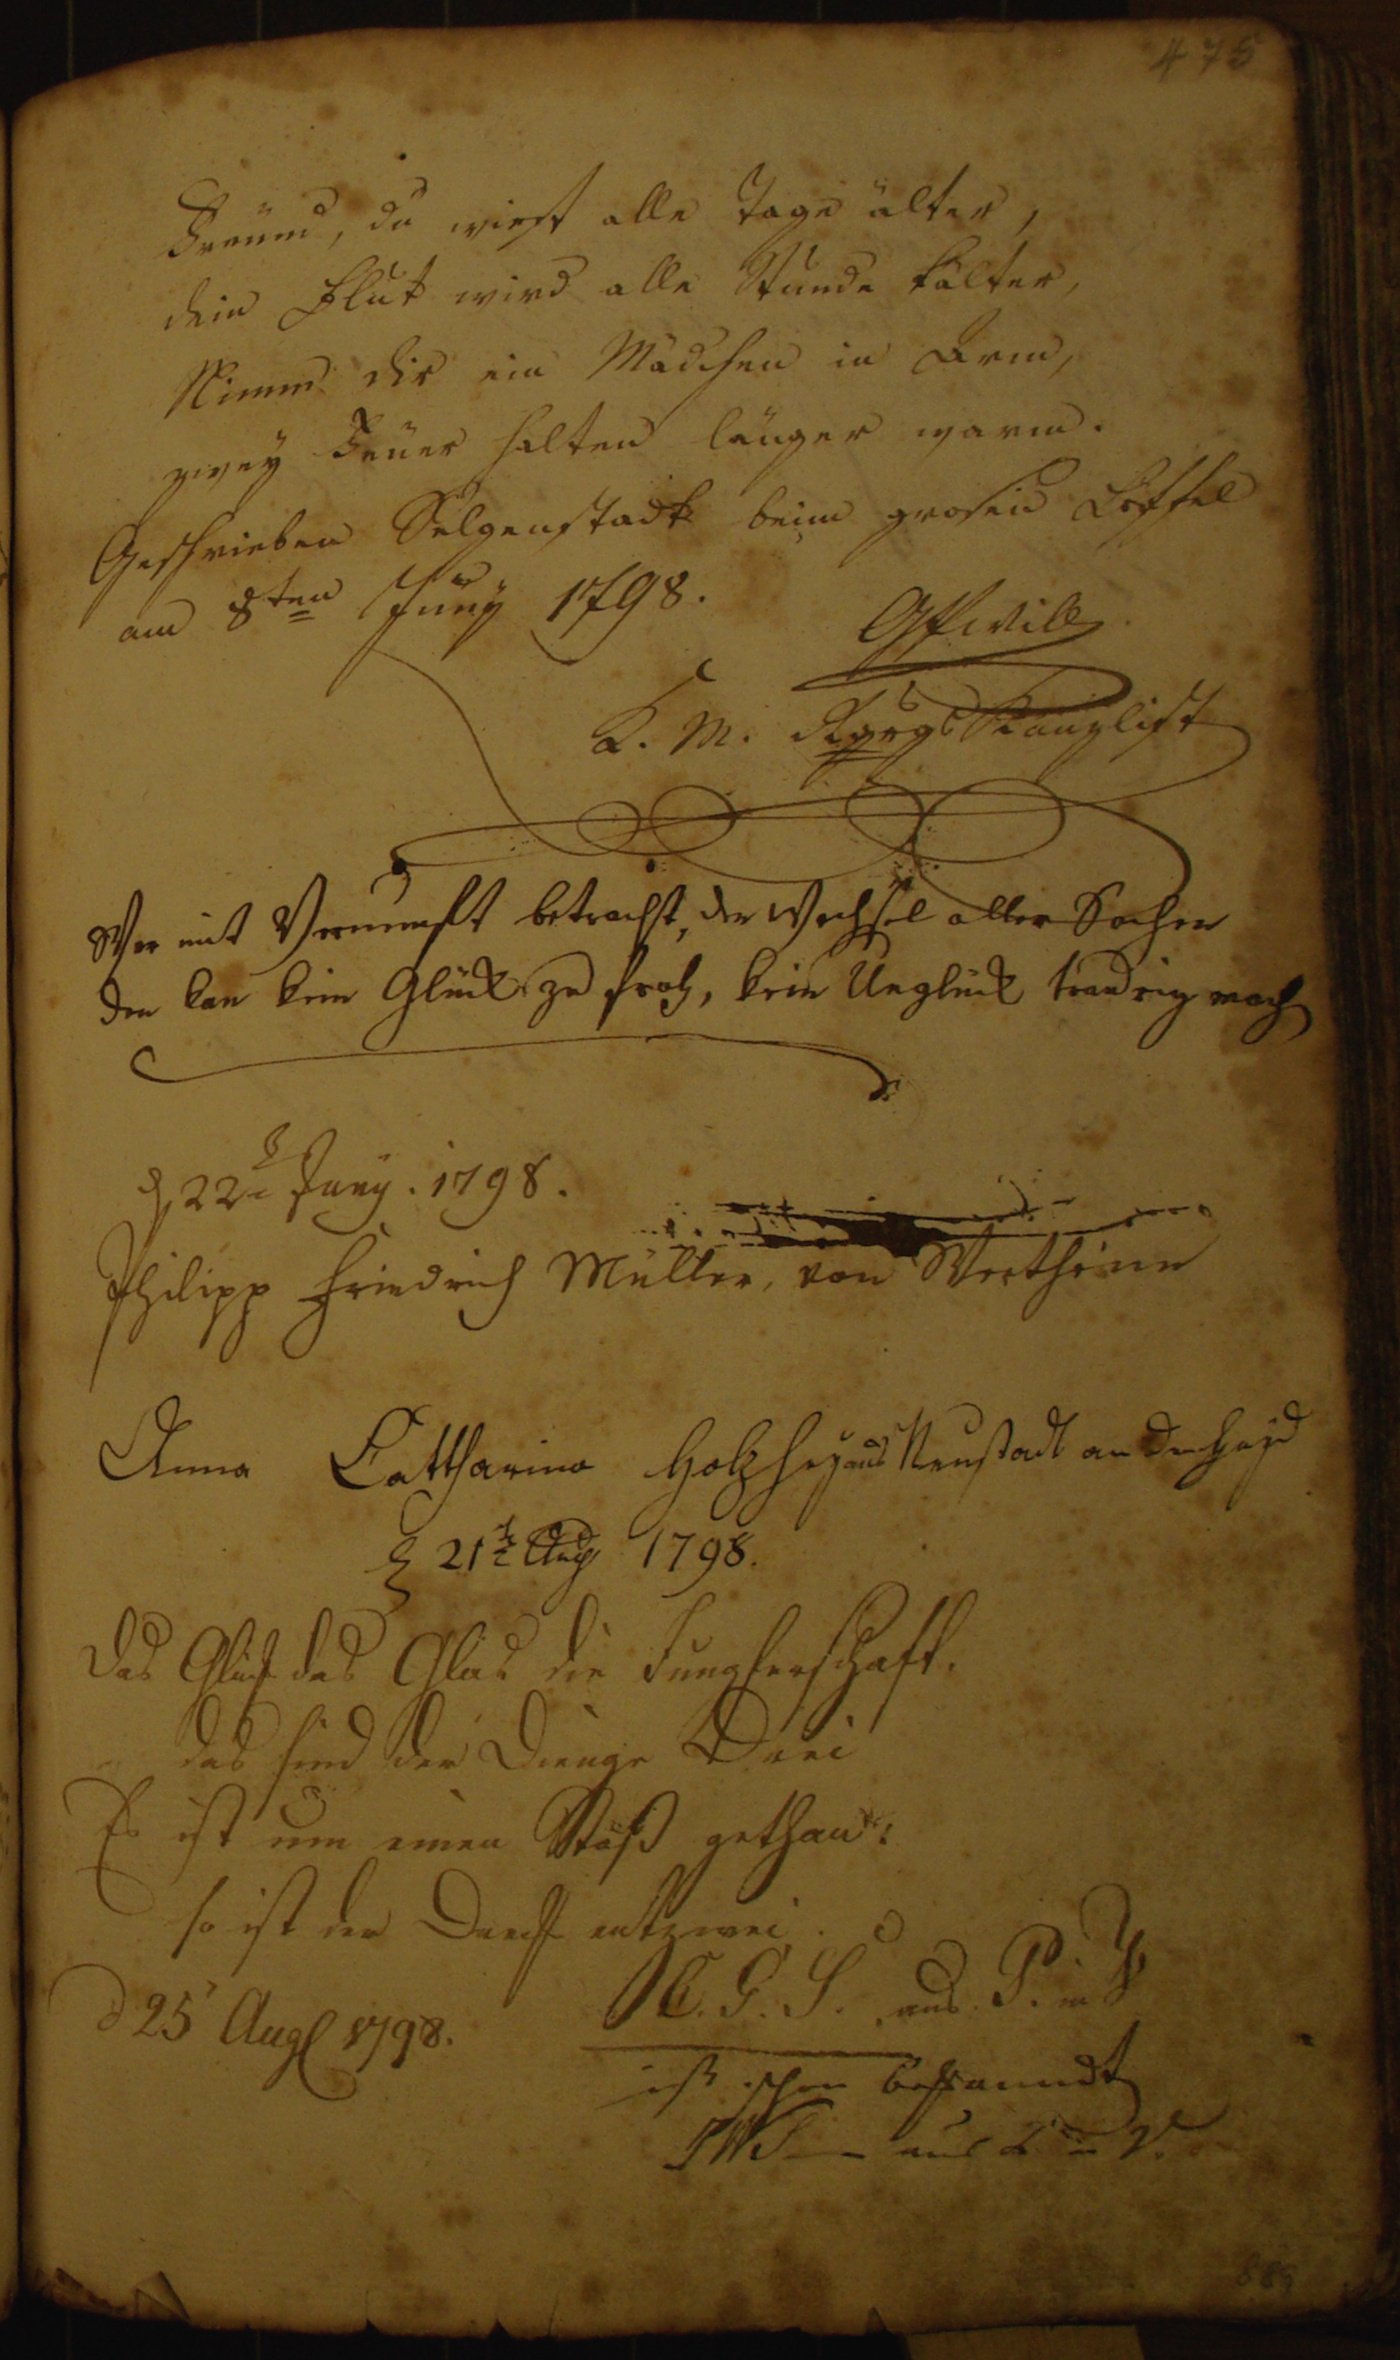 475
Freund, du wirst alle Tage älter,
dein Blut wird alle Stunde kälter,
Nimm dir ein Mädchen in Arm,
zwey Feuer halten länger warm.
Geschrieben Selgenstadt beim grosen Löffel
am 8ten Juny 1798.
Will
K. M. Kanzlist
Wer mit Vernunft betracht, den Wechsel aller Sachen
den kan kein Glück zu froh, kein Unglück traurig mach
d 22t Juny. 1798.
Philipp Friedrich Müller, von Wertheim
Anna Cattharina Holzhey aus Neustadt an der Heyd
d 21t Aug 1798.
das Glück das Glas die Jungferschaft.
das sind der Dinge Drei
Es ist um einen Stoß gethan:
so ist der entzwei.
d 25 Aug 1798.
C. G. S. aus P. in V
ist schon bekanndt
aus in V.
889